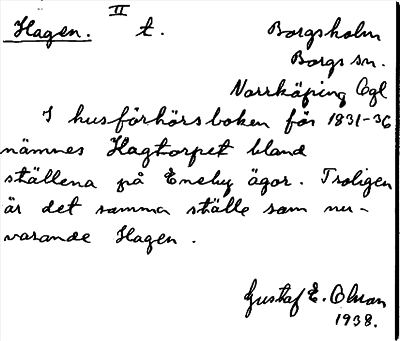 Hagen. II t. Borgsholm
Borgs sn.
Norrköping Ögl
I husförhörsboken för 1831-36
nämnes Hagtorpet bland
ställena på Eneby ägor. Troligen
är det samma ställe som nu-
varande Hagen.
Gustaf E. Olsson
1938.